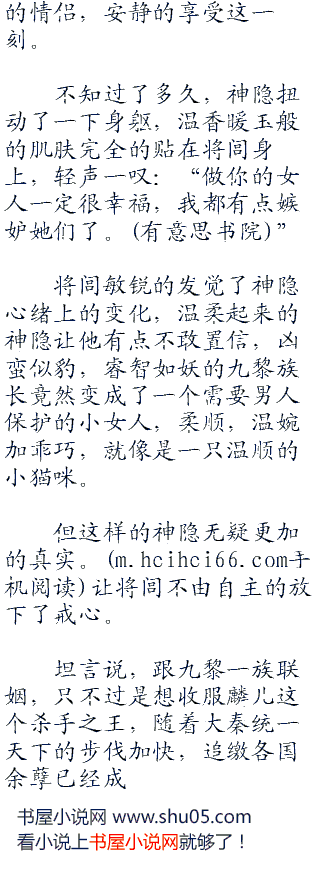 的情侣，安静的享受这一
刻。
不知过了多久，神隐扭
动了一下身躯，温香暖玉般
的肌肤完全的贴在将闾身
上，轻声一叹：“做你的女
人一定很幸福，我都有点嫉
妒她们了。(有意思书院)”
将闾敏锐的发觉了神隐
心绪上的变化，温柔起来的
神隐让他有点不敢置信，凶
蛮似豹，睿智如妖的九黎族
长竟然变成了一个需要男人
保护的小女人，柔顺，温婉
加乖巧，就像是一只温顺的
小猫咪。
但这样的神隐无疑更加
的真实。(m.hcihci66.com手
机阅读)让将闾不由自主的放
下了戒心。
坦言说，跟九黎一族联
姻，只不过是想收服麟儿这
个杀手之王，随着大秦统一
天下的步伐加快，追缴各国
余孽已经成
书屋小说网 www.shu05.com
看小说上书屋小说网就够了！